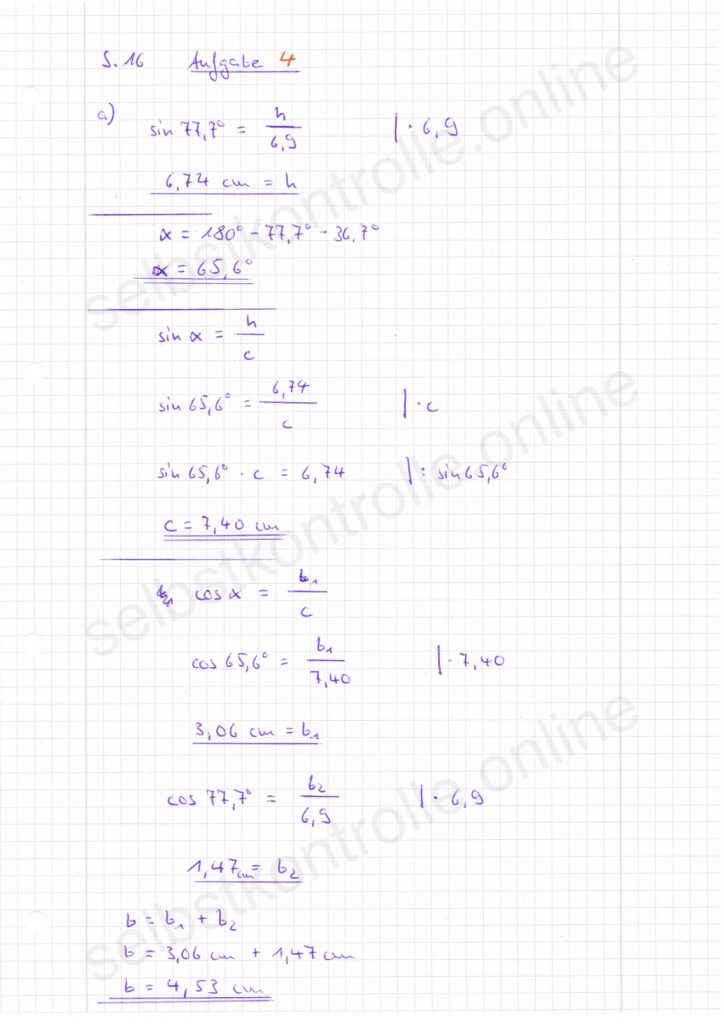 S. 16 Aufgabe 4
a) sin 77,7° = h/6,9 | · 6,9
6,74 cm = h
α = 180° - 77,7° - 36,7°
α = 65,6°
sin α = h/c
sin 65,6° = 6,74/c | · c
sin 65,6° · c = 6,74 | : sin 65,6°
c = 7,40 cm
cos α = b₁/c
cos 65,6° = b₁/7,40 | · 7,40
3,06 cm = b₁
cos 77,7° = b₂/6,9 | · 6,9
1,47 cm = b₂
b = b₁ + b₂
b = 3,06 cm + 1,47 cm
b = 4,53 cm
selbstkontrolle.online
selbstkontrolle.online
selbstkontrolle.online